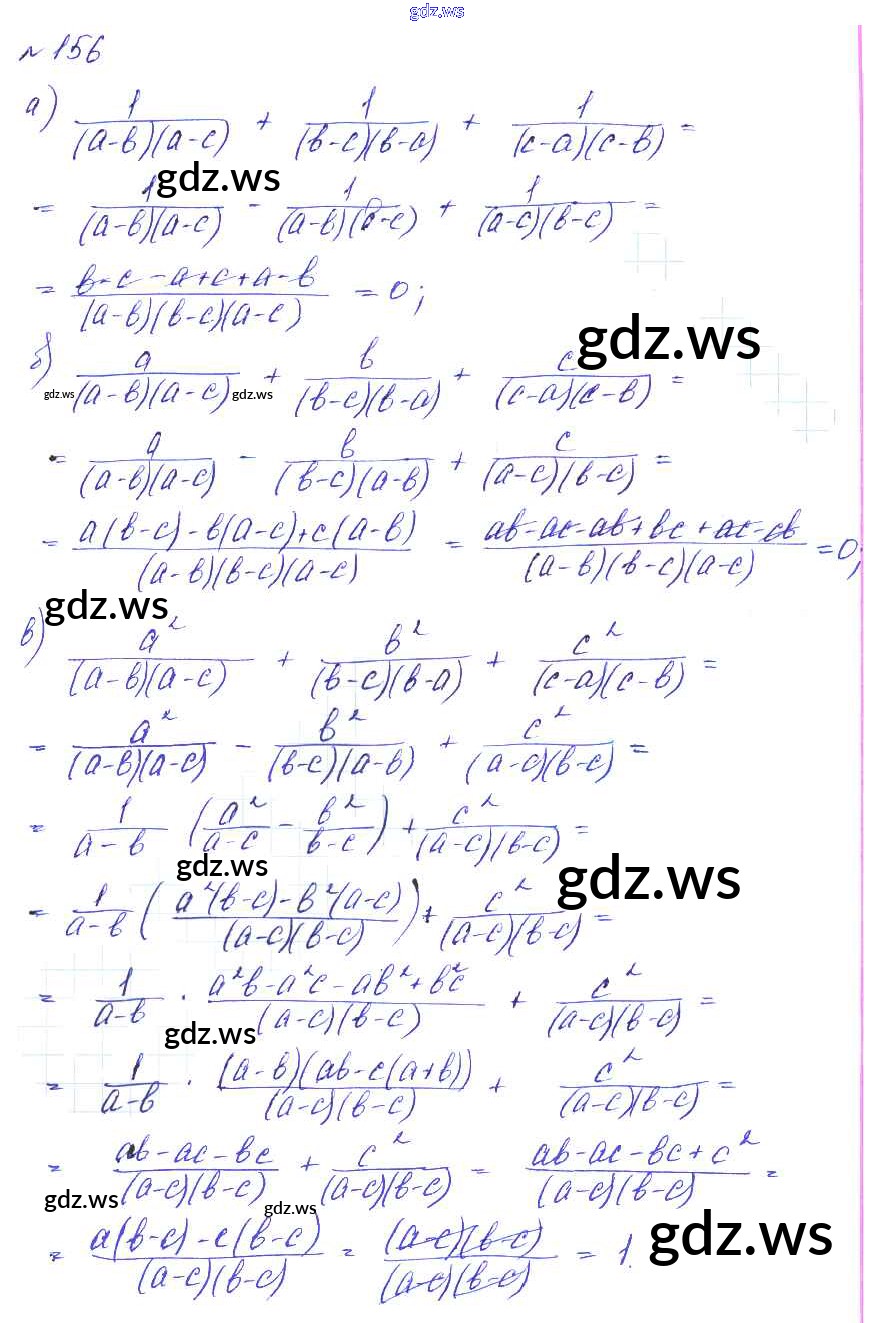 gdz.ws
№156
а) 1/((a-b)(a-c)) + 1/((b-c)(b-a)) + 1/((c-a)(c-b)) =
gdz.ws
= 1/((a-b)(a-c)) - 1/((a-b)(b-c)) + 1/((a-c)(b-c)) =
= (b-c-a+c+a-b)/((a-b)(b-c)(a-c)) = 0;
gdz.ws
б) a/((a-b)(a-c)) + b/((b-c)(b-a)) + c/((c-a)(c-b)) =
gdz.ws gdz.ws
= a/((a-b)(a-c)) - b/((b-c)(a-b)) + c/((a-c)(b-c)) =
= (a(b-c)-b(a-c)+c(a-b))/((a-b)(b-c)(a-c)) = (ab-ac-ab+bc+ac-cb)/((a-b)(b-c)(a-c)) = 0;
gdz.ws
в) a²/((a-b)(a-c)) + b²/((b-c)(b-a)) + c²/((c-a)(c-b)) =
= a²/((a-b)(a-c)) - b²/((b-c)(a-b)) + c²/((a-c)(b-c)) =
= 1/(a-b) (a²/(a-c) - b²/(b-c)) + c²/((a-c)(b-c)) =
gdz.ws gdz.ws
= 1/(a-b) ((a²(b-c)-b²(a-c))/((a-c)(b-c))) + c²/((a-c)(b-c)) =
= 1/(a-b) · (a²b-a²c-ab²+b²c)/((a-c)(b-c)) + c²/((a-c)(b-c)) =
gdz.ws
= 1/(a-b) · ((a-b)(ab-c(a+b)))/((a-c)(b-c)) + c²/((a-c)(b-c)) =
= (ab-ac-bc)/((a-c)(b-c)) + c²/((a-c)(b-c)) = (ab-ac-bc+c²)/((a-c)(b-c)) =
gdz.ws gdz.ws
= (a(b-c)-c(b-c))/((a-c)(b-c)) = ((a-c)(b-c))/((a-c)(b-c)) = 1.
gdz.ws